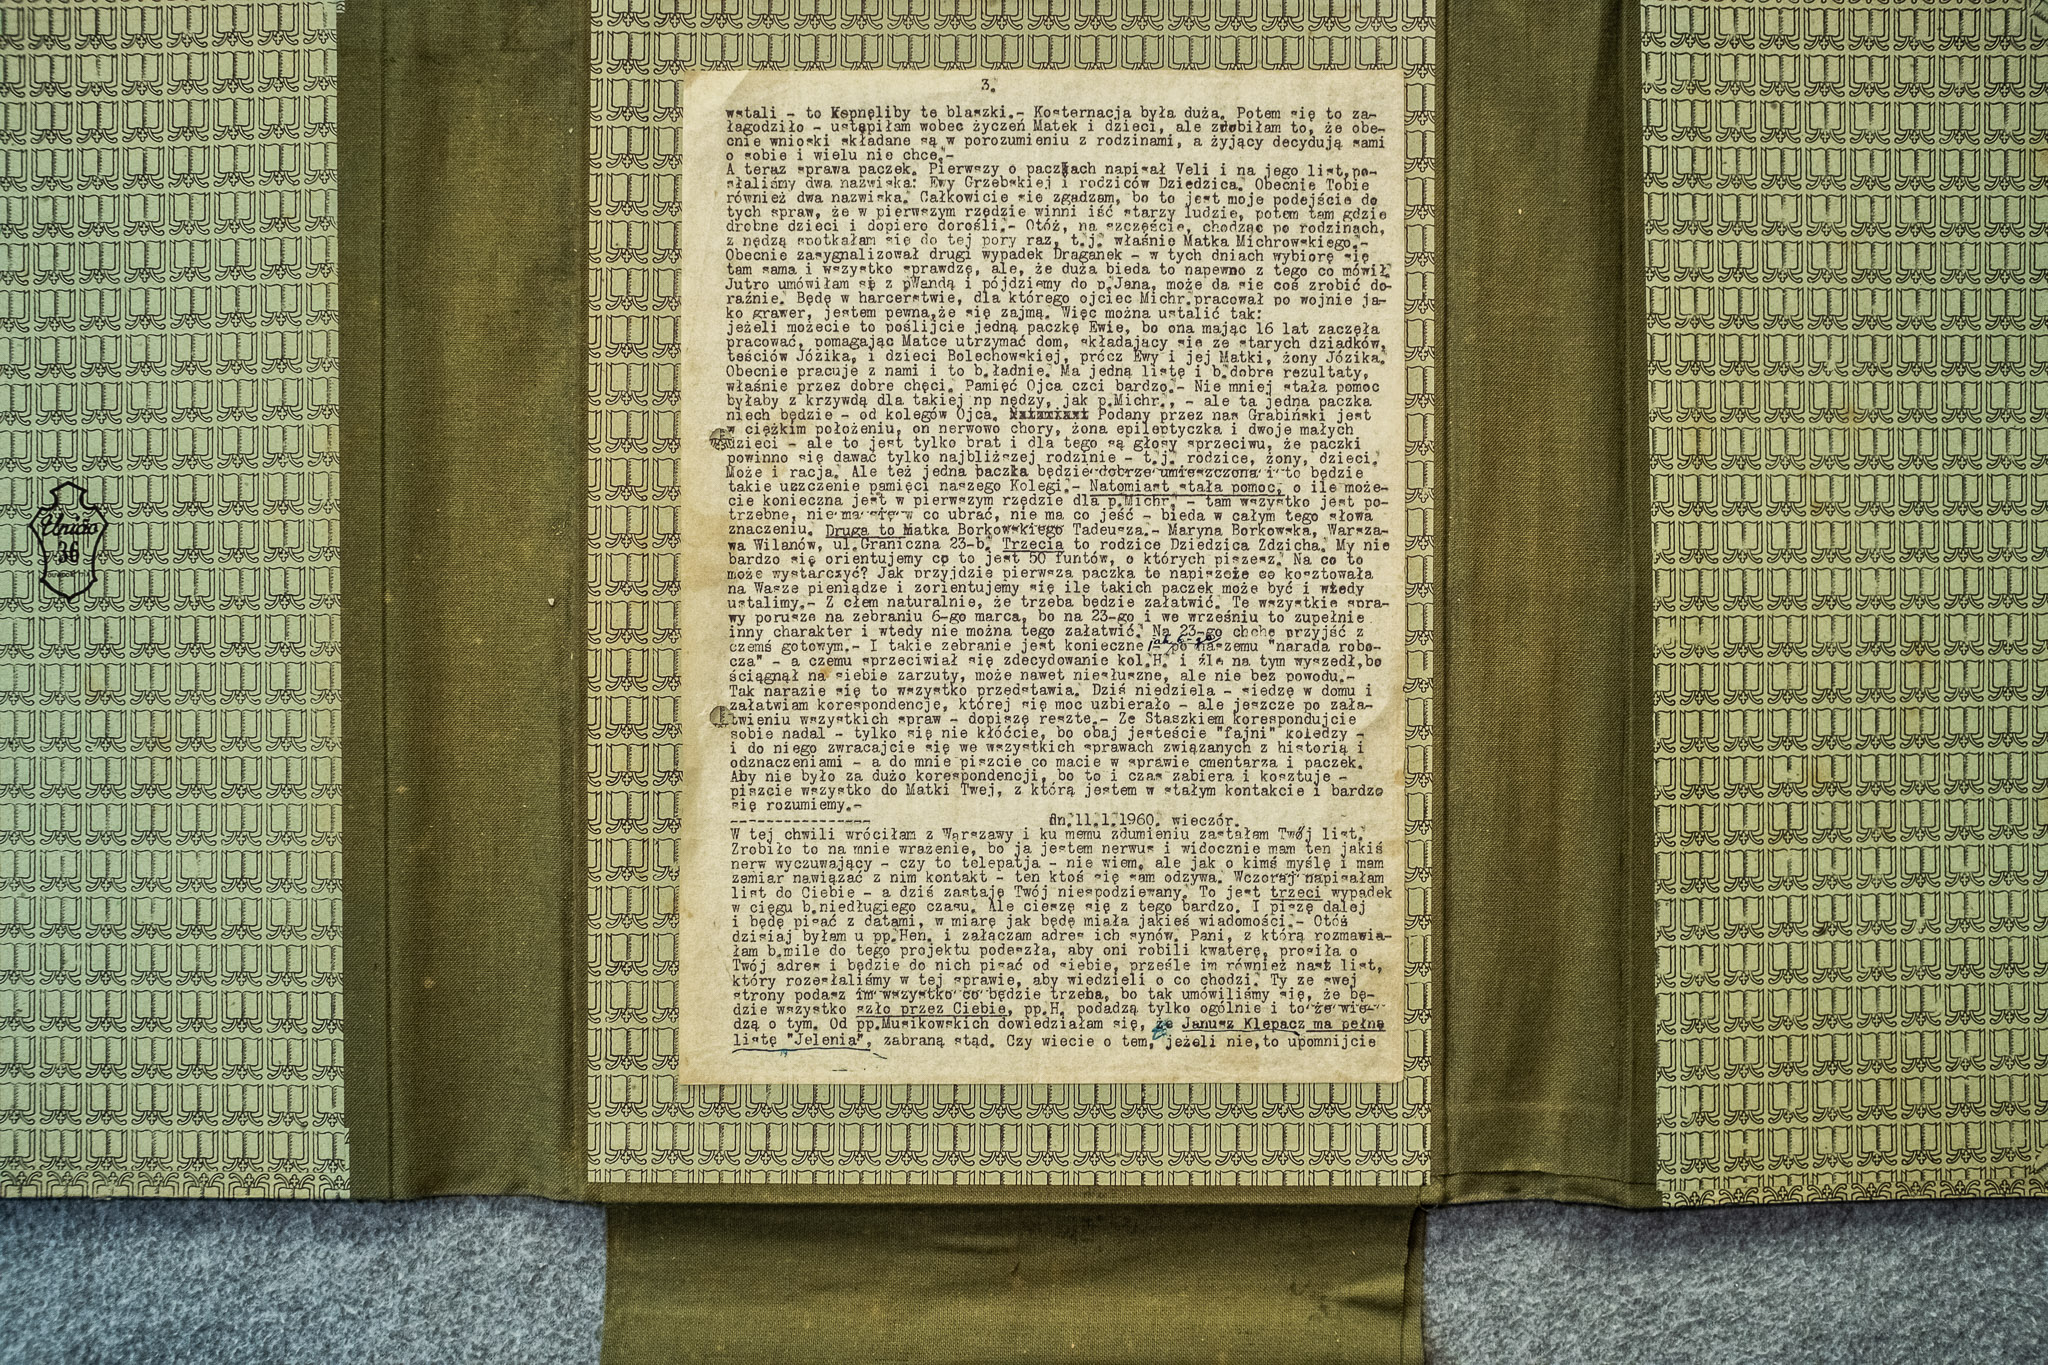 União
36
3.
wstali - to Kopnęliby te blaszki.- Konsternacja była duża. Potem się to za-
łagodziło - ustąpiłam wobec życzeń Matek i dzieci, ale zrobiłam to, że obe-
cnie wnioski składane są w porozumieniu z rodzinami, a żyjący decydują sami
o sobie i wielu nie chce.-
A teraz sprawa paczek. Pierwszy o paczkach napisał Veli i na jego list,po-
słaliśmy dwa nazwiska: Ewy Grzebskiej i rodziców Dziedzica. Obecnie Tobie
również dwa nazwiska. Całkowicie sie zgadzam, bo to jest moje podejście do
tych spraw, że w pierwszym rzędzie winni iść starzy ludzie, potem tam gdzie
drobne dzieci i dopiero dorośli.- Otóż, na szczęście, chodząc po rodzinach,
z nędzą spotkałam się do tej pory raz, t.j. właśnie Matka Michrowskiego.-
Obecnie zasygnalizował drugi wypadek Draganek - w tych dniach wybiorę się
tam sama i wszystko sprawdzę, ale, że duża bieda to napewno z tego co mówił.
Jutro umówiłam się z pWandą i pójdziemy do p.Jana, może da sie coś zrobić do-
raźnie. Będę w harcerstwie, dla którego ojciec Michr.pracował po wojnie ja-
ko grawer, jestem pewna,że się zajmą. Więc można ustalić tak:
jeżeli możecie to poślijcie jedną paczkę Ewie, bo ona mając 16 lat zaczęła
pracować, pomagając Matce utrzymać dom, składający sie ze starych dziadków,
teściów Józika, i dzieci Bolechowskiej, prócz Ewy i jej Matki, żony Józika.
Obecnie pracuje z nami i to b.ładnie. Ma jedną listę i b.dobre rezultaty,
właśnie przez dobre chęci. Pamięć Ojca czci bardzo.- Nie mniej stała pomoc
byłaby z krzywdą dla takiej np nędzy, jak p.Michr., - ale ta jedna paczka
niech będzie - od kolegów Ojca. Natmiast Podany przez nas Grabiński jest
w ciężkim położeniu, on nerwowo chory, żona epileptyczka i dwoje małych
dzieci - ale to jest tylko brat i dla tego są głosy sprzeciwu, że paczki
powinno się dawać tylko najbliższej rodzinie - t.j. rodzice, żony, dzieci.
Może i racja. Ale też jedna paczka będzie dobrze umieszczona i to będzie
takie uszczenie pamięci naszego Kolegi.- Natomiast stała pomoc, o ile może-
cie konieczna jest w pierwszym rzędzie dla p.Michr. - tam wszystko jest po-
trzebne, nie ma się w co ubrać, nie ma co jeść - bieda w całym tego słowa
znaczeniu. Druga to Matka Borkowskiego Tadeusza.- Maryna Borkowska, Warsza-
wa Wilanów, ul.Graniczna 23-b. Trzecia to rodzice Dziedzica Zdzicha. My nie
bardzo się orientujemy co to jest 50 funtów, o których piszesz. Na co to
może wystarczyć? Jak przyjdzie pierwsza paczka to napiszcie co kosztowała
na Wasze pieniądze i zorientujemy się ile takich paczek może być i wtedy
ustalimy.- Z cłem naturalnie, że trzeba będzie załatwić. Te wszystkie spra-
wy porusze na zebraniu 6-go marca, bo na 23-go i we wrześniu to zupełnie
inny charakter i wtedy nie można tego załatwić. Na 23-go chcę przyjść z
jak 6-go
czemś gotowym.- I takie zebranie jest konieczne - po naszemu "narada robo-
cza" - a czemu sprzeciwiał się zdecydowanie kol.H. i źle na tym wyszedł,bo
ściągnął na siebie zarzuty, może nawet niesłuszne, ale nie bez powodu.-
Tak narazie się to wszystko przedstawia. Dziś niedziela - siedzę w domu i
załatwiam korespondencje, której się moc uzbierało - ale jeszcze po zała-
twieniu wszystkich spraw - dopiszę resztę.- Ze Staszkiem korespondujcie
sobie nadal - tylko się nie kłóćcie, bo obaj jesteście "fajni" koledzy -
i do niego zwracajcie się we wszystkich sprawach związanych z historią i
odznaczeniami - a do mnie piszcie co macie w sprawie cmentarza i paczek.
Aby nie było za dużo korespondencji, bo to i czas zabiera i kosztuje -
piszcie wszystko do Matki Twej, z którą jestem w stałym kontakcie i bardzo
się rozumiemy.-
--------------- dn.11.1.1960. wieczór.
W tej chwili wróciłam z Warszawy i ku memu zdumieniu zastałam Twój list.
Zrobiło to na mnie wrażenie, bo ja jestem nerwus i widocznie mam ten jakiś
nerw wyczuwający - czy to telepatja - nie wiem, ale jak o kimś myślę i mam
zamiar nawiązać z nim kontakt - ten ktoś się sam odzywa. Wczoraj napisałam
list do Ciebie - a dziś zastaję Twój niespodziewany. To jest trzeci wypadek
w ciągu b.niedługiego czasu. Ale cieszę się z tego bardzo. I piszę dalej
i będę pisać z datami, w miarę jak będę miała jakieś wiadomości.- Otóż
dzisiaj byłam u pp.Hen. i załaczam adres ich synów. Pani, z którą rozmawia-
łam b.mile do tego projektu podeszła, aby oni robili kwaterę, prosiła o
Twój adres i będzie do nich pisać od siebie, prześle im również nasz list,
który rozesłaliśmy w tej sprawie, aby wiedzieli o co chodzi. Ty ze swej
strony podasz im wszystko co będzie trzeba, bo tak umówiliśmy się, że bę-
dzie wszystko szło przez Ciebie, pp.H. podadzą tylko ogólnie i to że wie-
dzą o tym. Od pp.Musikowskich dowiedziałam się, że Janusz Klepacz ma pełną
listę "Jelenia", zabraną stąd. Czy wiecie o tem, jeżeli nie,to upomnijcie